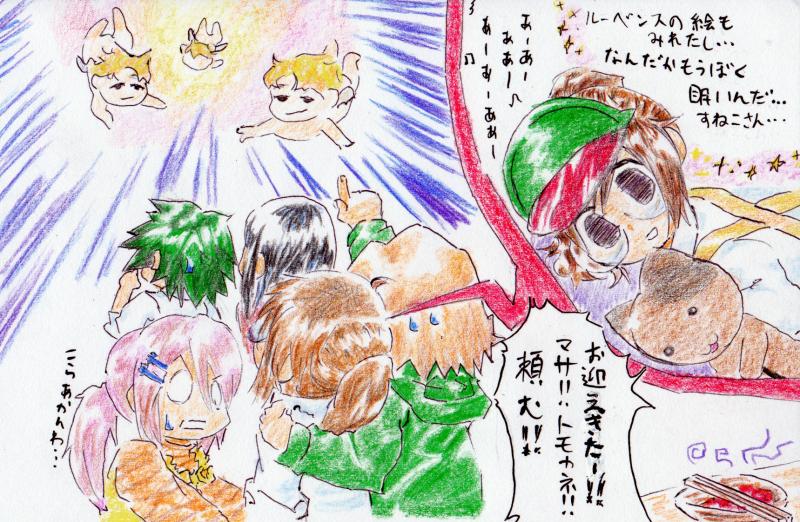 ルーベンスの絵も
みれたし…
なんだかもうぼく
眠いんだ…
すねこさん…
あーあー♪
あああー♪
あーむーあぁー
お迎えきたー!!
マサ!!トモカネ!!
頼む!!
こらあかんわ…